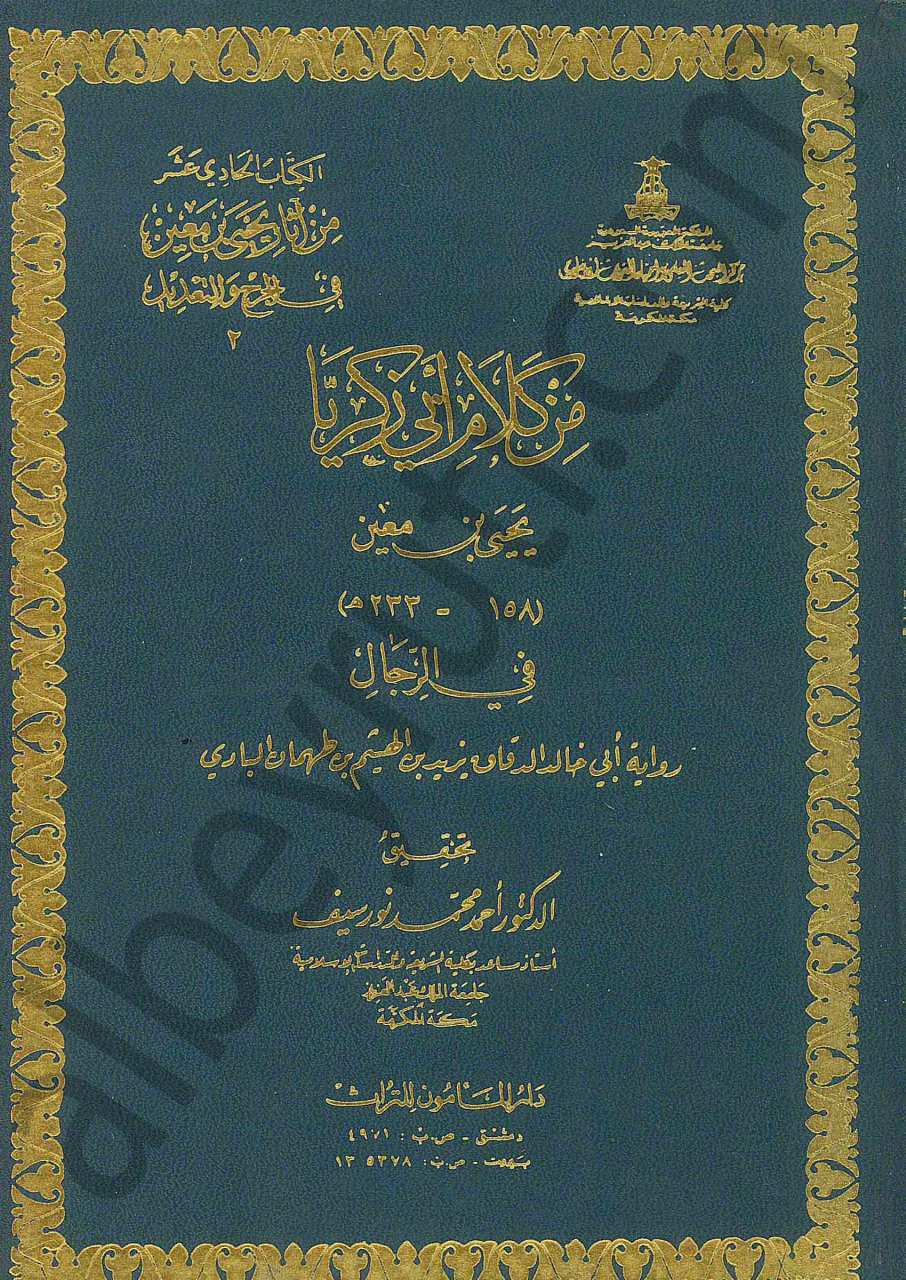 المملكة العربية السعودية
جامعة الملك عبد العزيز
مركز البحث العلمي وإحياء التراث الإسلامي
كلية الشريعة والدراسات الإسلامية
مكة المكرمة
الكتاب الحادي عشر
من آثار يحيى بن معين
في الجرح والتعديل
٢
من كلام أبي زكريا
يحيى بن معين
(١٥٨ - ٢٣٣ هـ)
في الرجال
رواية أبي خالد الدقاق يزيد بن الهيثم بن طهمان البادي
تحقيق
الدكتور أحمد محمد نور سيف
أستاذ مساعد بكلية الشريعة والدراسات الإسلامية
جامعة الملك عبد العزيز
مكة المكرمة
دار المأمون للتراث
دمشق - ص.ب: ٤٩٧١
بيروت - ص.ب: ٥٣٧٨ ١٣
albeyruti.com